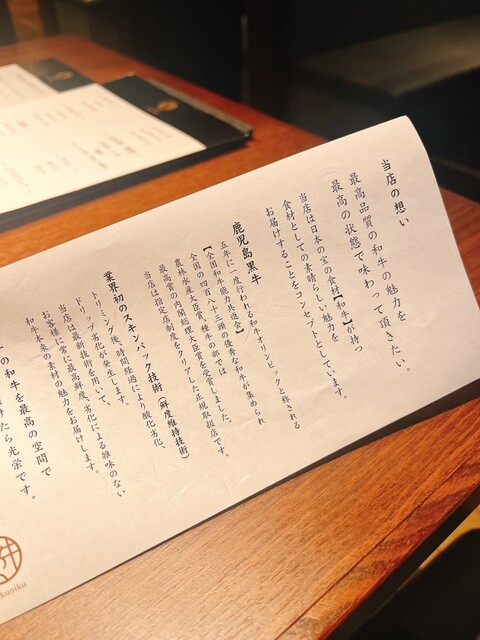 当店の想い
最高品質の和牛の魅力を
最高の状態で味わって頂きたい。
当店は日本の宝の食材【和牛】が持つ
食材としての素晴らしい魅力を
お届けすることをコンセプトとしています。
鹿児島黒牛
五年に一度行われる和牛オリンピックと称される
【全国和牛能力共進会】
全国の四百八十三頭の優秀な和牛が集められ
農林水産大臣賞、種牛の部では
最高賞の内閣総理大臣賞を受賞しました。
当店は指定店制度をクリアした正規取扱店です。
業界初のスキンパック技術(鮮度維持技術)
トリミング後、時間経過により酸化劣化、
ドリップ劣化が発生します。
当店は最新技術を用いて、
お客様に常に最高鮮度、劣化による雑味のない
和牛本来の素材の魅力をお届けします。
の和牛を最高の空間で
けたら光栄です。
kuniku